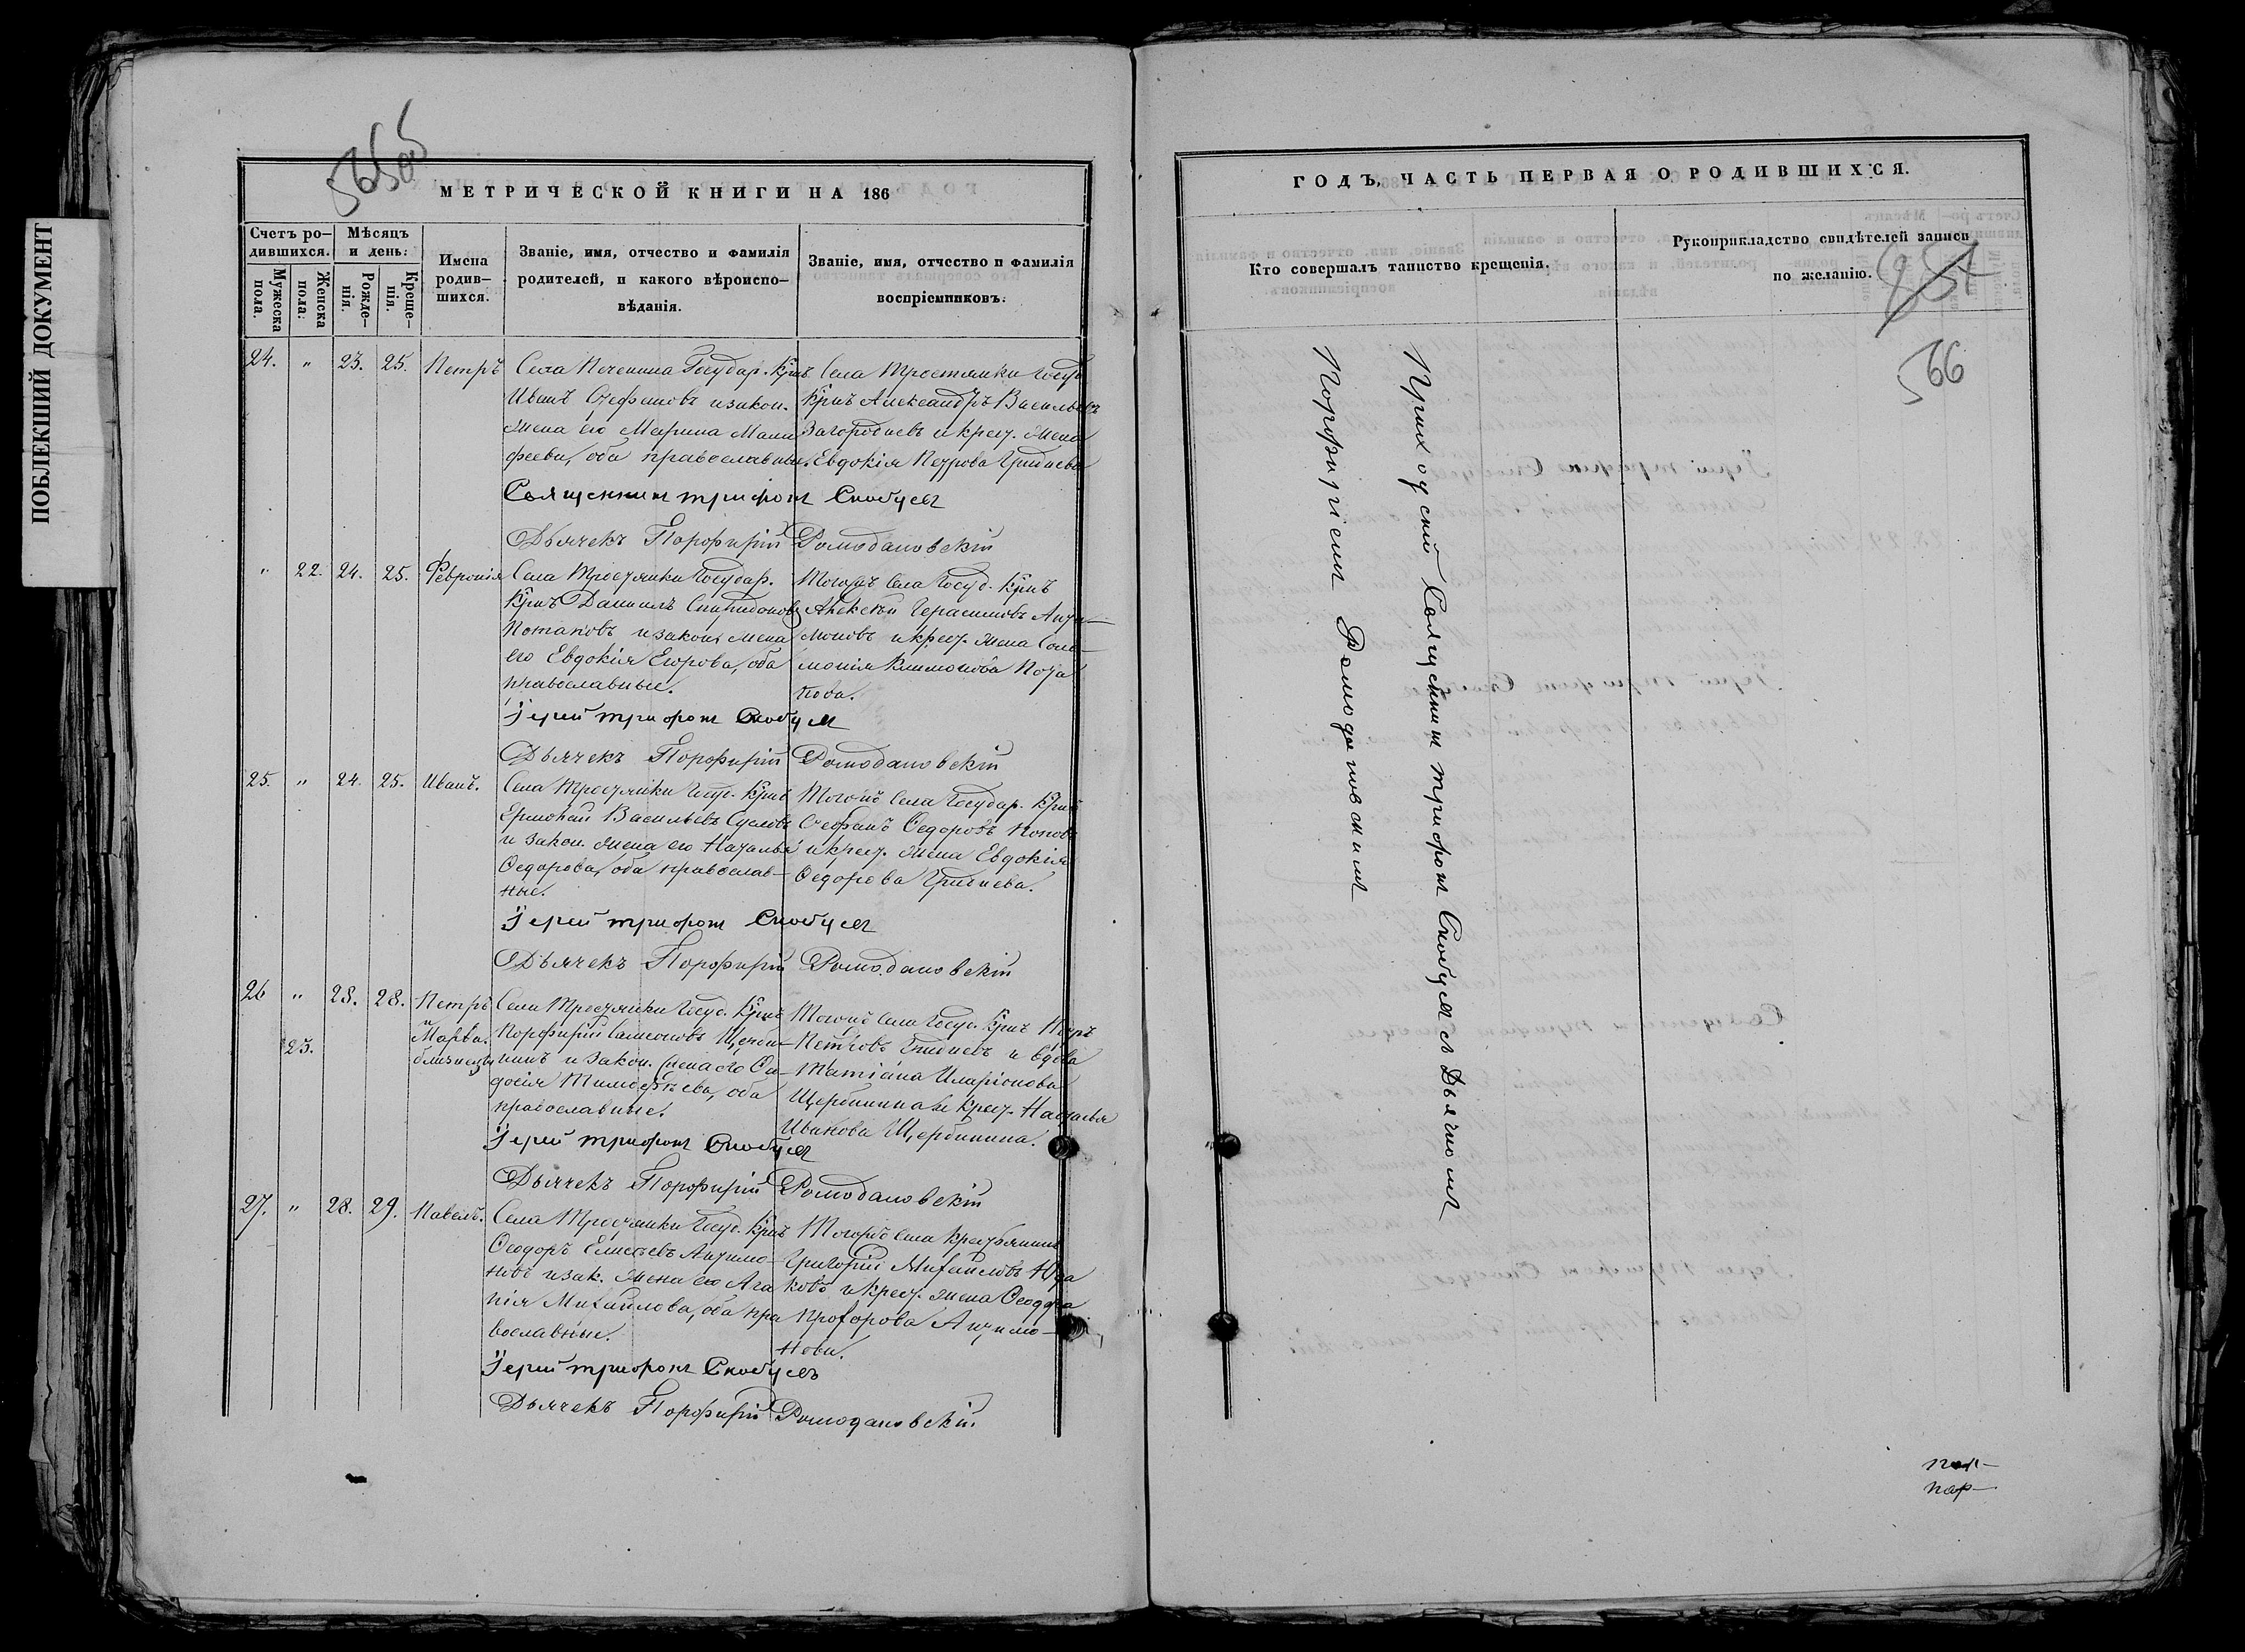 ПОБЛЕКШИЙ ДОКУМЕНТ
МЕТРИЧЕСКОЙ КНИГИ НА 186
Счетъ ро-
дившихся.
Мужеска
пола.
Женска
пола.
Мѣсяцъ
и день:
Рожде-
нія.
Креще-
нія.
Имена
родив-
шихся.
Званіе, имя, отчество и фамилія
родителей, и какого вѣроиспо-
вѣданія.
Званіе, имя, отчество и фамилія
воспріемниковъ.
24. " 23. 25. Петръ
Села Государ. Крнъ
Иванъ Стефановъ и закон.
жена его Марина
феева, оба православные.
Села Тростянки Госуд.
Крнъ Александръ Васильевъ
Загородневъ и крест. жена
Евдокія Петрова Гриднева
Священникъ Трифонъ
Дьячекъ Порфирій Ромодановскій
" 22. 24. 25. Февронія
Села Тростянки Государ.
Крнъ Даніилъ Спиридоновъ
Потаповъ и закон. жена
его Евдокія Егорова, оба
православные.
Тогожъ села Госуд. Крнъ
Алексѣй Герасимовъ Анти-
моновъ и крест. жена Соло-
монія Климонова Пота
пова.
Іерей Трифонъ
Дьячекъ Порфирій Ромодановскій
25. " 24. 25. Иванъ.
Села Тростянки Госуд. Крнъ
Ермолай Васильевъ Сусловъ
и закон. жена его Наталья
Ѳедорова, оба православ-
ные.
Тогожъ села Государ. Крнъ
Стефанъ Ѳедоровъ Поповъ
и крест. жена Евдокія
Ѳедорова Гриднева.
Іерей Трифонъ
Дьячекъ Порфирій Ромодановскій
26 " 28. 28. Петръ
и
Марѳа.
23.
близнецы
Села Тростянки Госуд. Крнъ
Порфирій Самсоновъ Щерби-
нинъ и закон. жена его Ѳе-
досія Тимофѣева, оба
православные.
Тогожъ села Госуд. Крнъ Петръ
Петровъ Гридневъ и вдова
Татіана Иларіонова
Щербинина и крест. Наталья
Иванова Щербинина.
Іерей Трифонъ
Дьячекъ Порфирій Ромодановскій
27. " 28. 29. Павелъ.
Села Тростянки Госуд. Крнъ
Ѳеодоръ Елисѣевъ Антимо-
новъ и зак. жена его Ага
пія Михайлова, оба пра
вославные.
Тогожъ села крестьянинъ
Григорій Михайловъ
ковъ и крест. жена Ѳеодора
Прохорова Антимо-
нова.
Іерей Трифонъ
Дьячекъ Порфирій Ромодановскій.
ГОДЪ, ЧАСТЬ ПЕРВАЯ О РОДИВШИХСЯ.
Кто совершалъ таинство крещенія.
Рукоприкладство свидѣтелей записи
по желанію.
566
Приходскій Священникъ Трифонъ съ Дьячкомъ
Порфиріемъ Ромодановскимъ